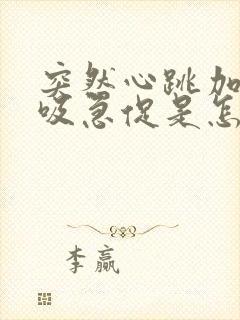 突然心跳加
吸急促是怎
李赢